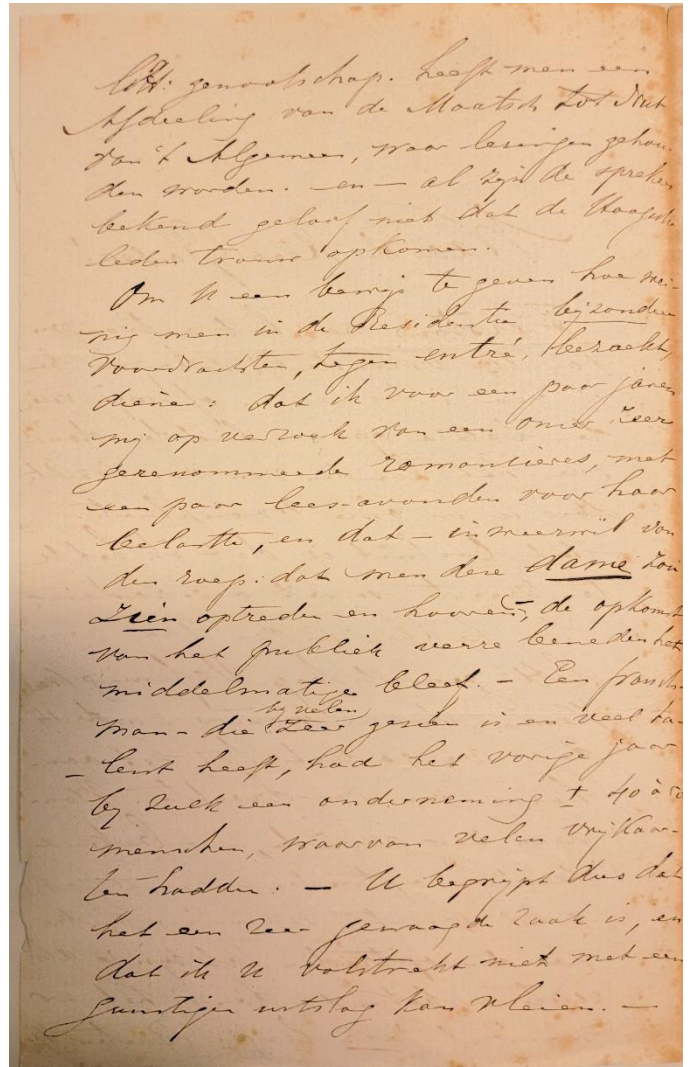 Lett: genootschap. heeft men een
Afdeeling van de Maatsch tot Nut
van 't Algemeen, waar lezingen gehou-
den worden. - en - al zijn de sprekers
bekend geloof niet dat de Haagsche
leden trouw opkomen.
Om U een bewijs te geven hoe wei-
nig men in de Residentie bijzondere
voordrachten, tegen entré, bezoekt,
diene: dat ik voor een paar jaren
mij op verzoek van een onzer zeer
gerenommeerde romancières, met
een paar lees-avonden voor haar
belastte, en dat - in weerwil van
den roep: dat men deze dame zou
zien optreden en hooren -, de opkomst
van het publiek verre beneden het
middelmatige bleef. - Een fransch-
man - die by velen zeer gezien is en veel ta-
lent heeft, had het vorige jaar
by zulk een onderneming ± 40 à 50
menschen, waarvan velen vrijkaar-
ten hadden. - U begrijpt dus dat
het een zeer gewaagde zaak is, en
dat ik U volstrekt niet met een
gunstigen uitslag kan vleien. -